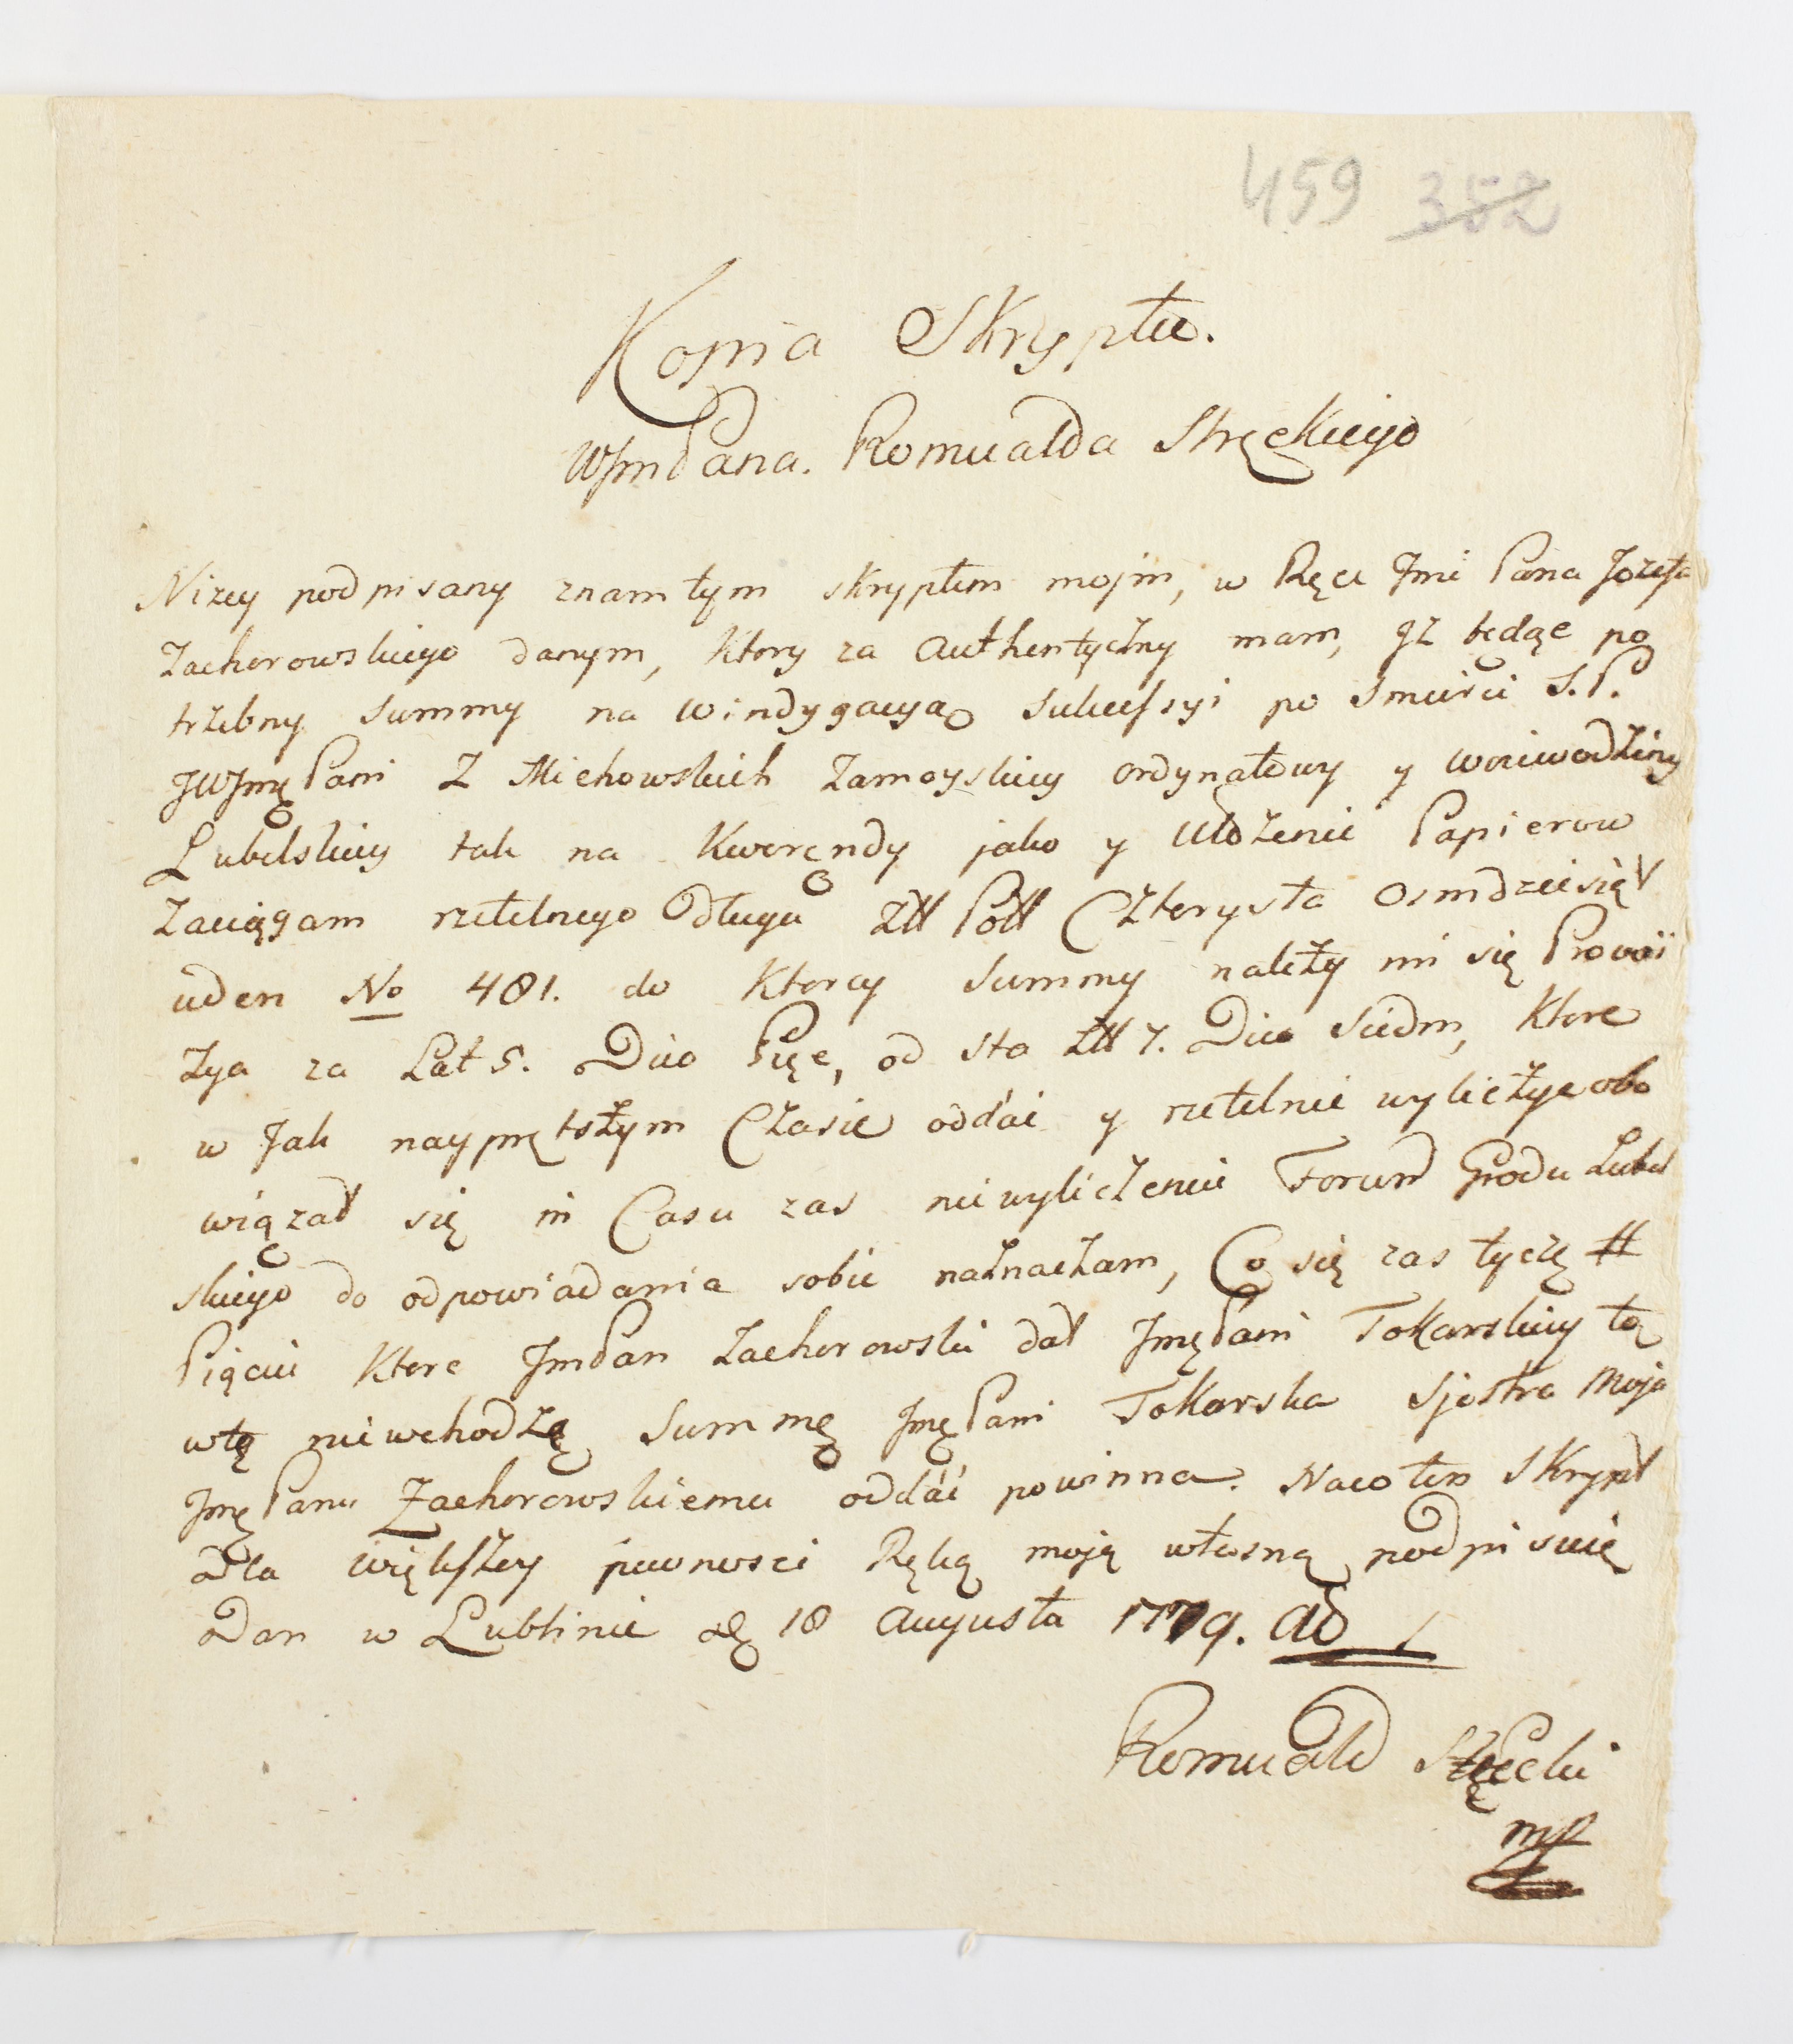 459 352
Kopia Skryptu.
WJmPana. Romualda Stręckiego
Nizey podpisany znam tym skryptem mojm, w Ręce Jmć Pana Jozefa
Zachorowskiego danym, ktory za Authentyczny mam, Jż będąc po
trzebny Summy na windygacyą Sukcessyi po Smierci S.P.
JWJmę Pani Z Michowskich Zamoyskiey Ordynatowy y Woiewodziny
Lubelskiey tak na Kwerendy jako y Ułożenie Papierow
Zaciągam rzetelnego Długu Złł Poll Czterysta Osmdziesiąt
ieden No 481. do ktorey Summy należy mi się Prowi
zya za Lat 5. Dico Pięc, od sta Złł 7. Dico Siedm, ktore
w Jak nayprętszym Czasie oddać y rzetelnie wyliczyc obo
wiązał się in Casu zas niewyliczenia Forum Grodu Lubel
skiego do odpowiadania sobie naznaczam, Co się zas tyczę #
Pięciu ktore JmPan Zachorowski dał JmęPani Tokarskiey to
wtę niewchodzą Summę JmęPani Tokarska Sjostra Moja
JmęPanu Zachorowskiemu oddać powinna. Naco ten Skrypt
dla większey pewnosci Ręką moją własną podpisuię
Dan w Lublinie d. 18 Augusta 1779. Ao
Romuald Stręcki
mp